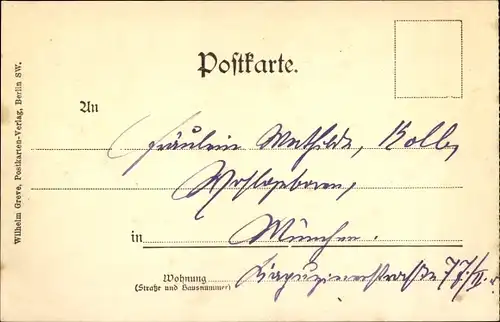 Postkarte.
An
Fräulein Mathilde, Kolb,
Wohlgeboren,
in München.
Wohnung
(Straße und Hausnummer)
Kapuzinerstraße 77/II.
Wilhelm Greve, Postkarten-Verlag, Berlin SW.